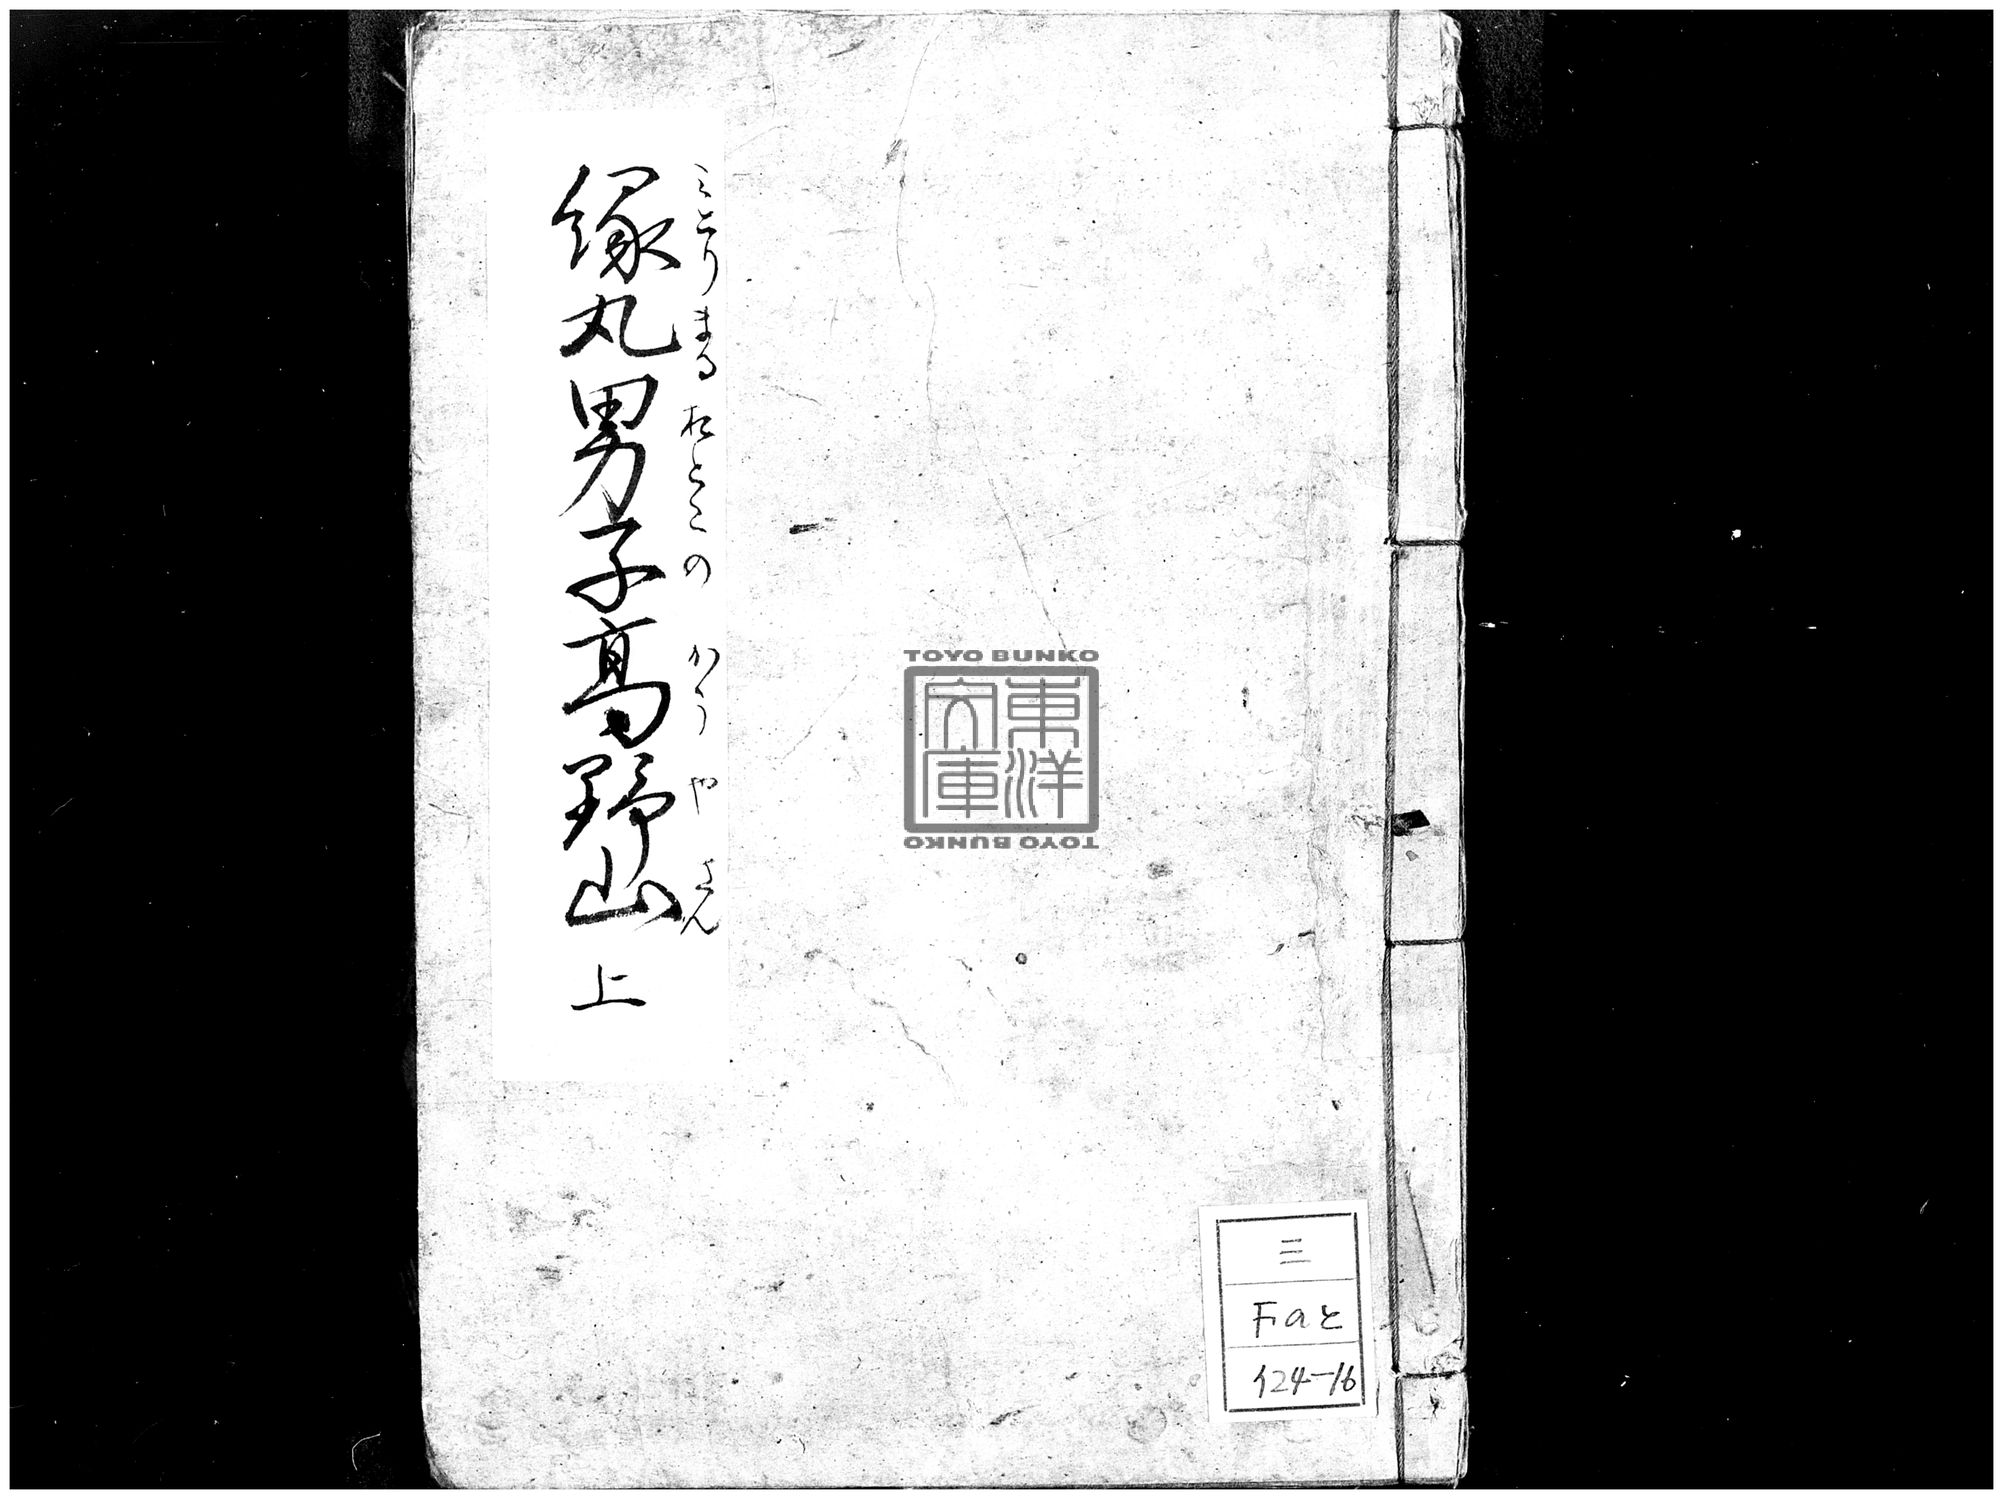 緑丸男子高野山 上
みとりまるおとこのかうやさん
TOYO BUNKO
東洋
文庫
TOYO BUNKO
三
Faと
124-16